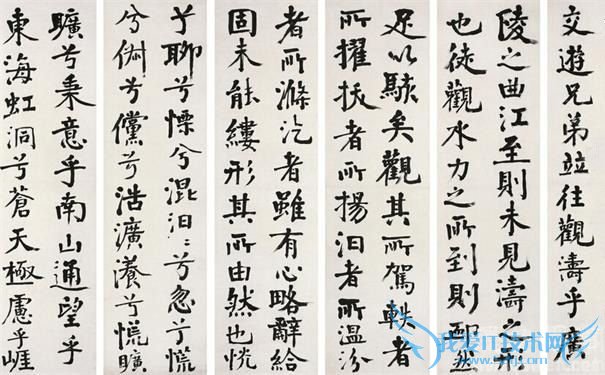 交遊兄弟並往觀濤乎廣
陵之曲江至則未見濤之形
也徒觀水力之所到則卹然
足以駭矣觀其所駕軼者
所擢拔者所揚汩者所溫汾
者所滌汔者雖有心略辭給
固未能縷形其所由然也怳
兮聊兮慄兮混汩〻兮忽兮慌
兮俶兮儻兮浩瀇瀁兮慌曠
曠兮秉意乎南山通望乎
東海虹洞兮蒼天極慮乎崕
我爱IT技术网